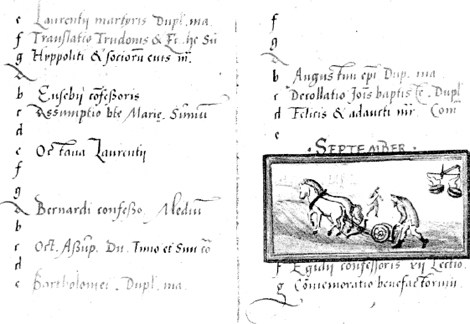 e Laurentii martyris Dupl. ma.
f Translatio Trudonis &
g Hyppoliti & sociorū eius
A
b Eusebij cōfessoris
c Assumptio bte Marie
d
e Octaua Laurentij
f
g
A Bernardi confesso. Mediū
b
c Oct. Assūp.
d
e Bartholomei. Dupl. ma.
f
g
A
b Augustini epi Dup. ma.
c Decollatio Joīs baptiste. Dupl
d Felicis & adaucti mr. Com̄
e
· SEPTEMBER ·
f Egidij confessoris xij Lectio.
g Cōmemoratio benefactorum